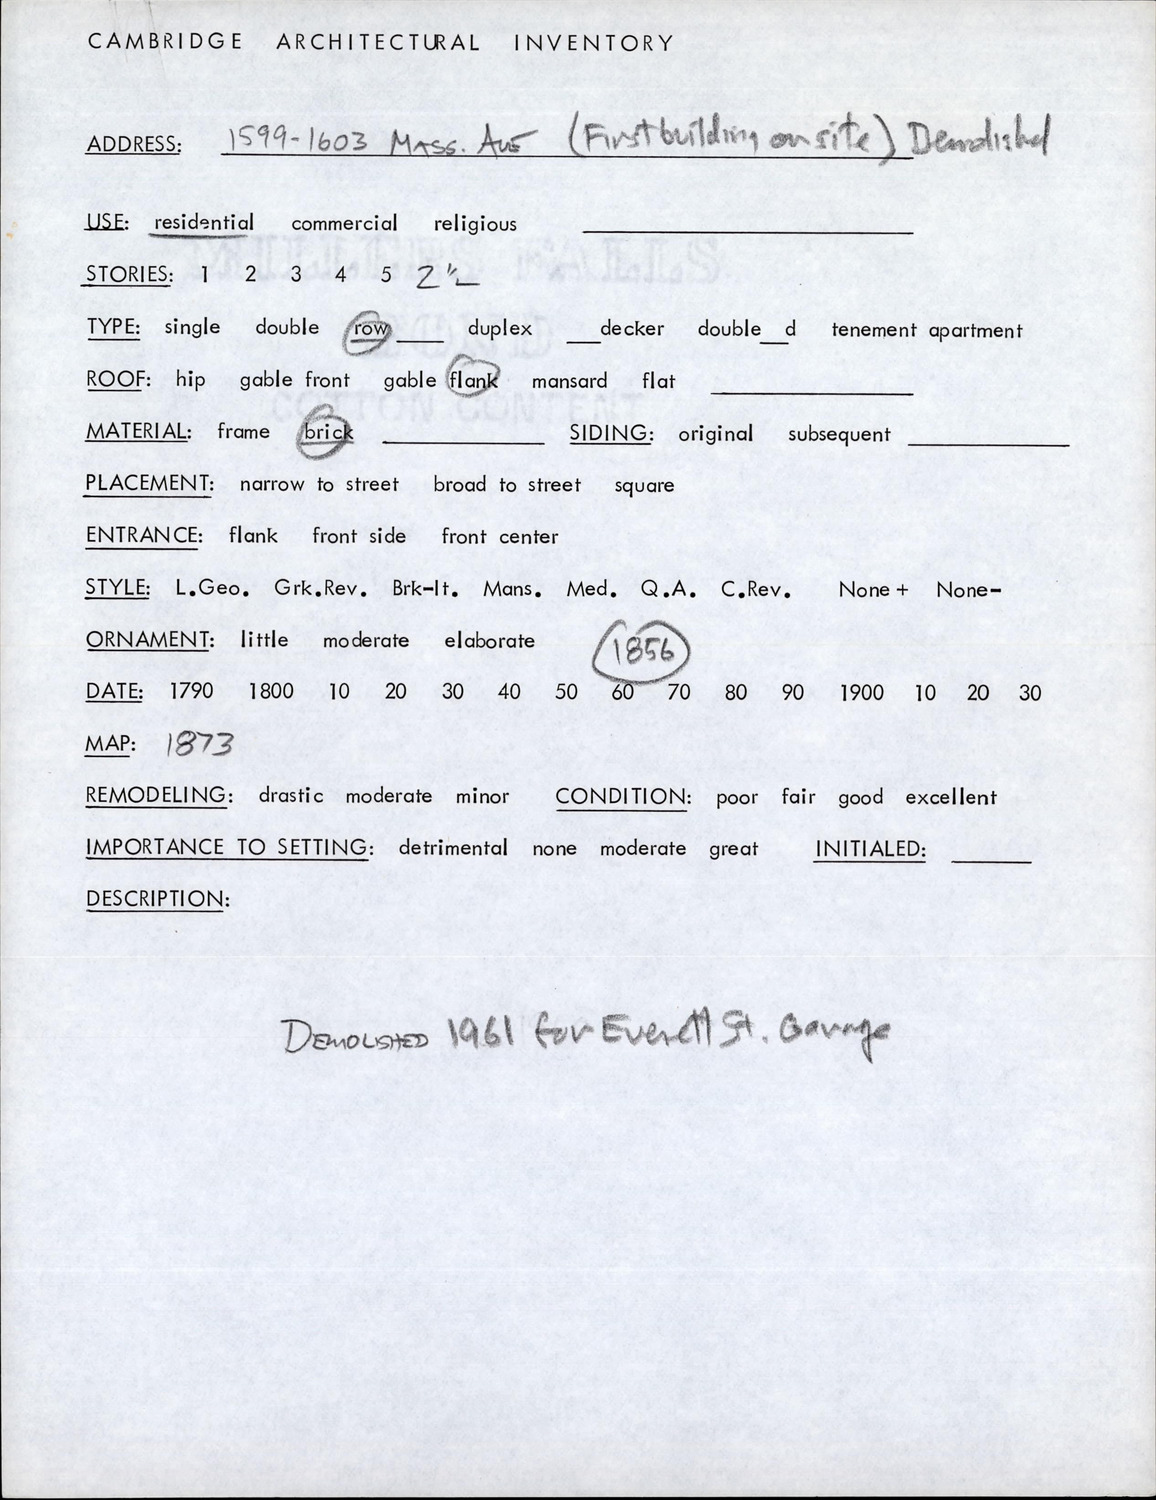 CAMBRIDGE ARCHITECTURAL INVENTORY
ADDRESS: 1599-1603 MASS. AVE (First building on site) Demolished
USE: residential commercial religious
STORIES: 1 2 3 4 5 2 1/2
TYPE: single double row ____ duplex ___decker double___d tenement apartment
ROOF: hip gable front gable flank mansard flat
MATERIAL: frame brick SIDING: original subsequent
PLACEMENT: narrow to street broad to street square
ENTRANCE: flank front side front center
STYLE: L.Geo. Grk.Rev. Brk-It. Mans. Med. Q.A. C.Rev. None + None-
ORNAMENT: little moderate elaborate 1856
DATE: 1790 1800 10 20 30 40 50 60 70 80 90 1900 10 20 30
MAP: 1873
REMODELING: drastic moderate minor CONDITION: poor fair good excellent
IMPORTANCE TO SETTING: detrimental none moderate great INITIALED:
DESCRIPTION:
DEMOLISHED 1961 for Everett St. Garage
MILLERS FALLS
COTTON CONTENT